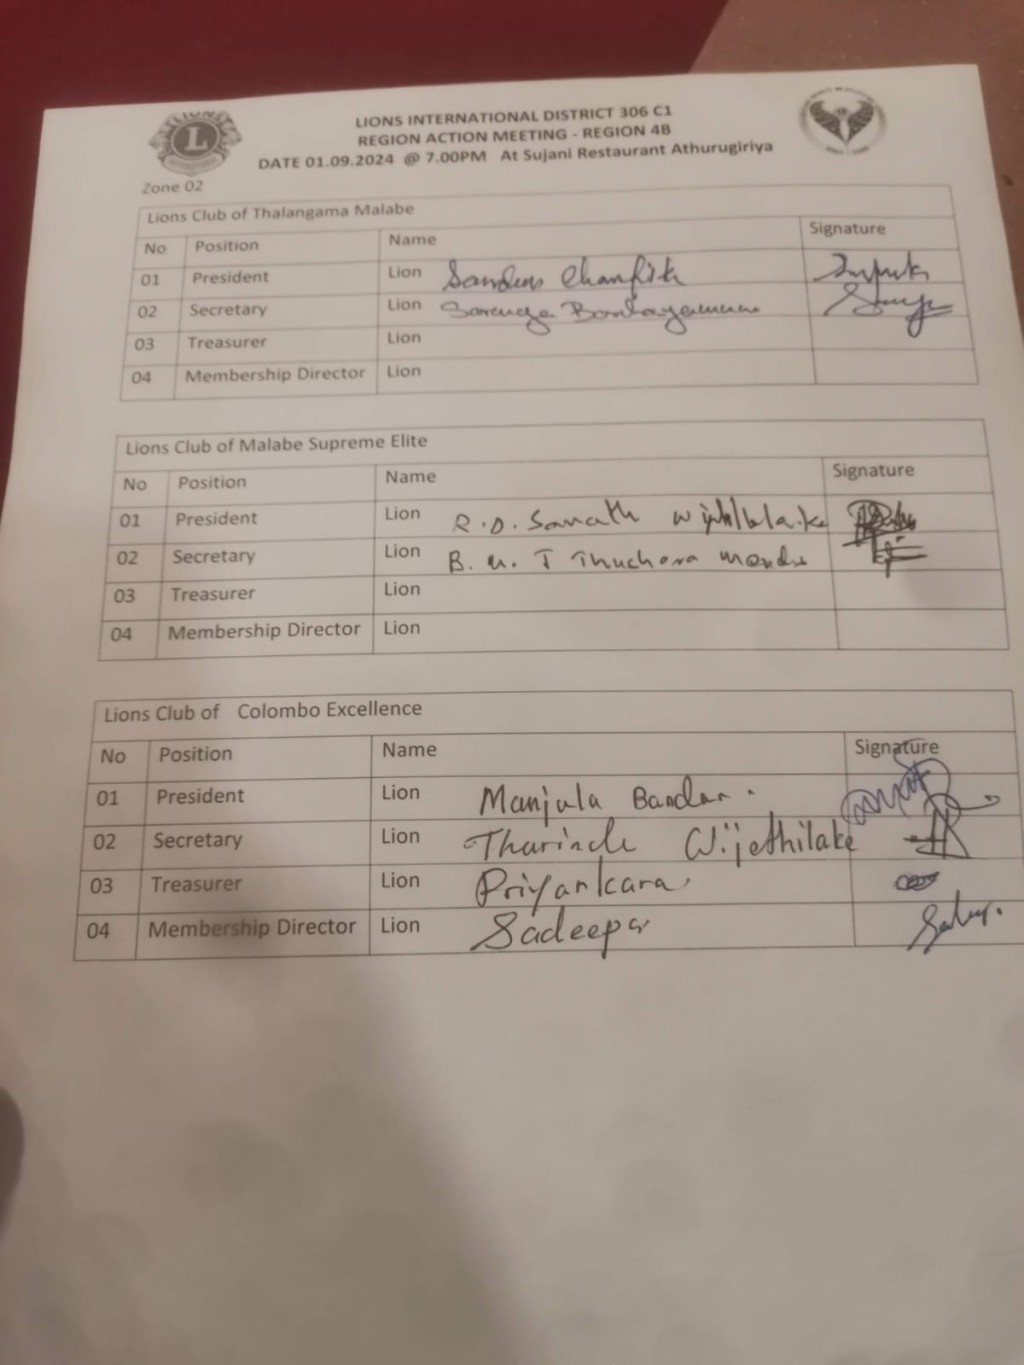 LIONS INTERNATIONAL DISTRICT 306 C1
REGION ACTION MEETING - REGION 4B
DATE 01.09.2024 @ 7.00PM At Sujani Restaurant Athurugiriya
Zone 02
Lions Club of Thalangama Malabe
No Position Name Signature
01 President Lion
02 Secretary Lion
03 Treasurer Lion
04 Membership Director Lion
Lions Club of Malabe Supreme Elite
No Position Name Signature
01 President Lion R.D. Sanath
02 Secretary Lion B.M.T Thuchara
03 Treasurer Lion
04 Membership Director Lion
Lions Club of Colombo Excellence
No Position Name Signature
01 President Lion Manjula Bandar.
02 Secretary Lion Tharindu Wijethilake
03 Treasurer Lion Priyankara
04 Membership Director Lion Sadeepa